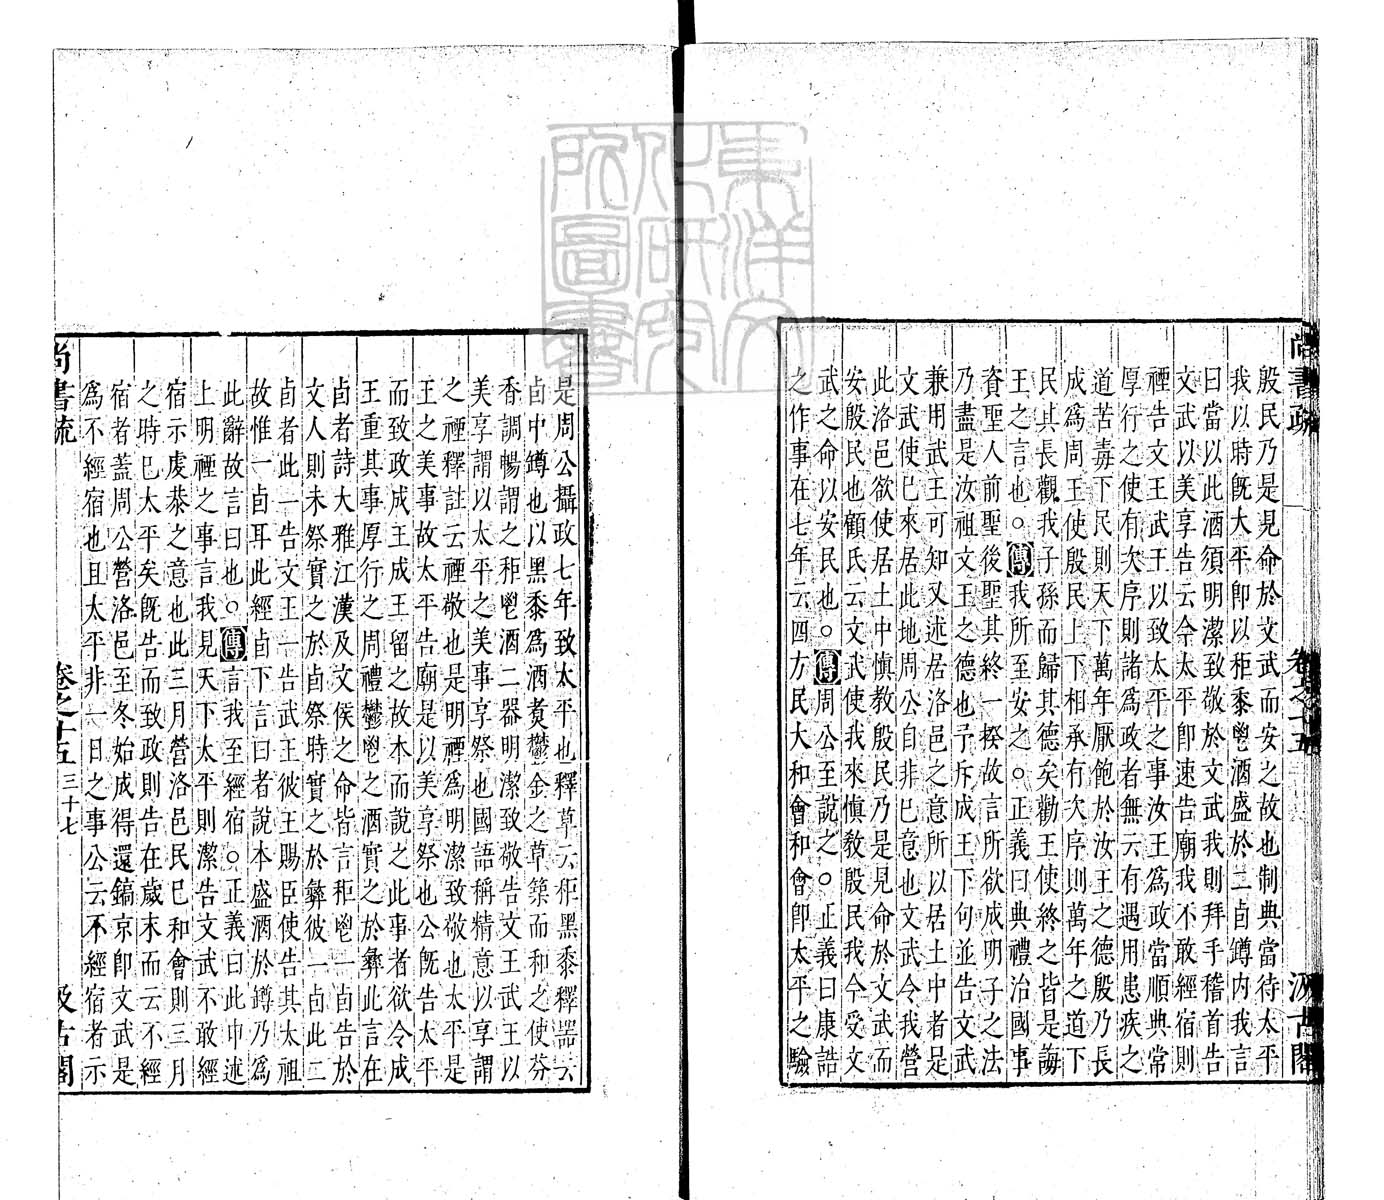 尚書疏 卷之十五 汲古閣
殷民乃是見命於文武而安之故也制典當待太平
我以時既大平即以秬黍鬯酒盛於二卣罇内我言
曰當以此酒須明潔致敬於文武我則拜手稽首告
文武以美享告云今太平即速告廟我不敢經宿則
禋告文王武王以致太平之事汝王為政當順典常
厚行之使有次序則諸為政者無云有遇用患疾之
道苦毒下民則天下萬年厭飽於汝王之德殷乃長
成為周王使殷民上下相承有次序則萬年之道下
民其長觀我子孫而歸其德矣勸王使終之皆是誨
王之言也○傳我所至安之○正義曰典禮治國事
資聖人前聖後聖其終一揆故言所欲成明子之法
乃盡是汝祖文王之德也予斥成王下句並告文武
兼用武王可知又述居洛邑之意所以居土中者是
文武使巳來居此地周公自非巳意也文武令我營
此洛邑欲使居土中慎教殷民乃是見命於文武而
安殷民也顧氏云文武使我來慎教殷民我今受文
武之命以安民也○傳周公至說之○正義曰康誥
之作事在七年云四方民大和會和會即太平之驗
是周公攝政七年致太平也釋草云秬黑黍釋器云
卣中罇也以黑黍為酒煑鬱金之草築而和之使芬
香調暢謂之秬鬯酒二器明潔致敬告文王武王以
美享謂以太平之美事享祭也國語稱精意以享謂
之禋釋註云禋敬也是明禋為明潔致敬也太平是
王之美事故太平告廟是以美享祭也公既告太平
而致政成王成王留之故本而說之此事者欲令成
王重其事厚行之周禮鬱鬯之酒實之於彝此言在
卣者詩大雅江漢及文侯之命皆言秬鬯一卣告於
文人則未祭實之於卣祭時實之於彝彼一卣此二
卣者此一告文王一告武王彼王賜臣使告其太祖
故惟一卣耳此經卣下言曰者說本盛酒於罇乃為
此辭故言曰也○傳言我至經宿○正義曰此申述
上明禋之事言我見天下太平則潔告文武不敢經
宿示虔恭之意也此三月營洛邑民巳和會則三月
之時巳太平矣既告而致政則告在歲末而云不經
宿者蓋周公營洛邑至冬始成得還鎬京即文武是
為不經宿也且太平非一日之事公云不經宿者示
尚書疏 卷之十五 三十七 汲古閣
東洋文化研究所圖書